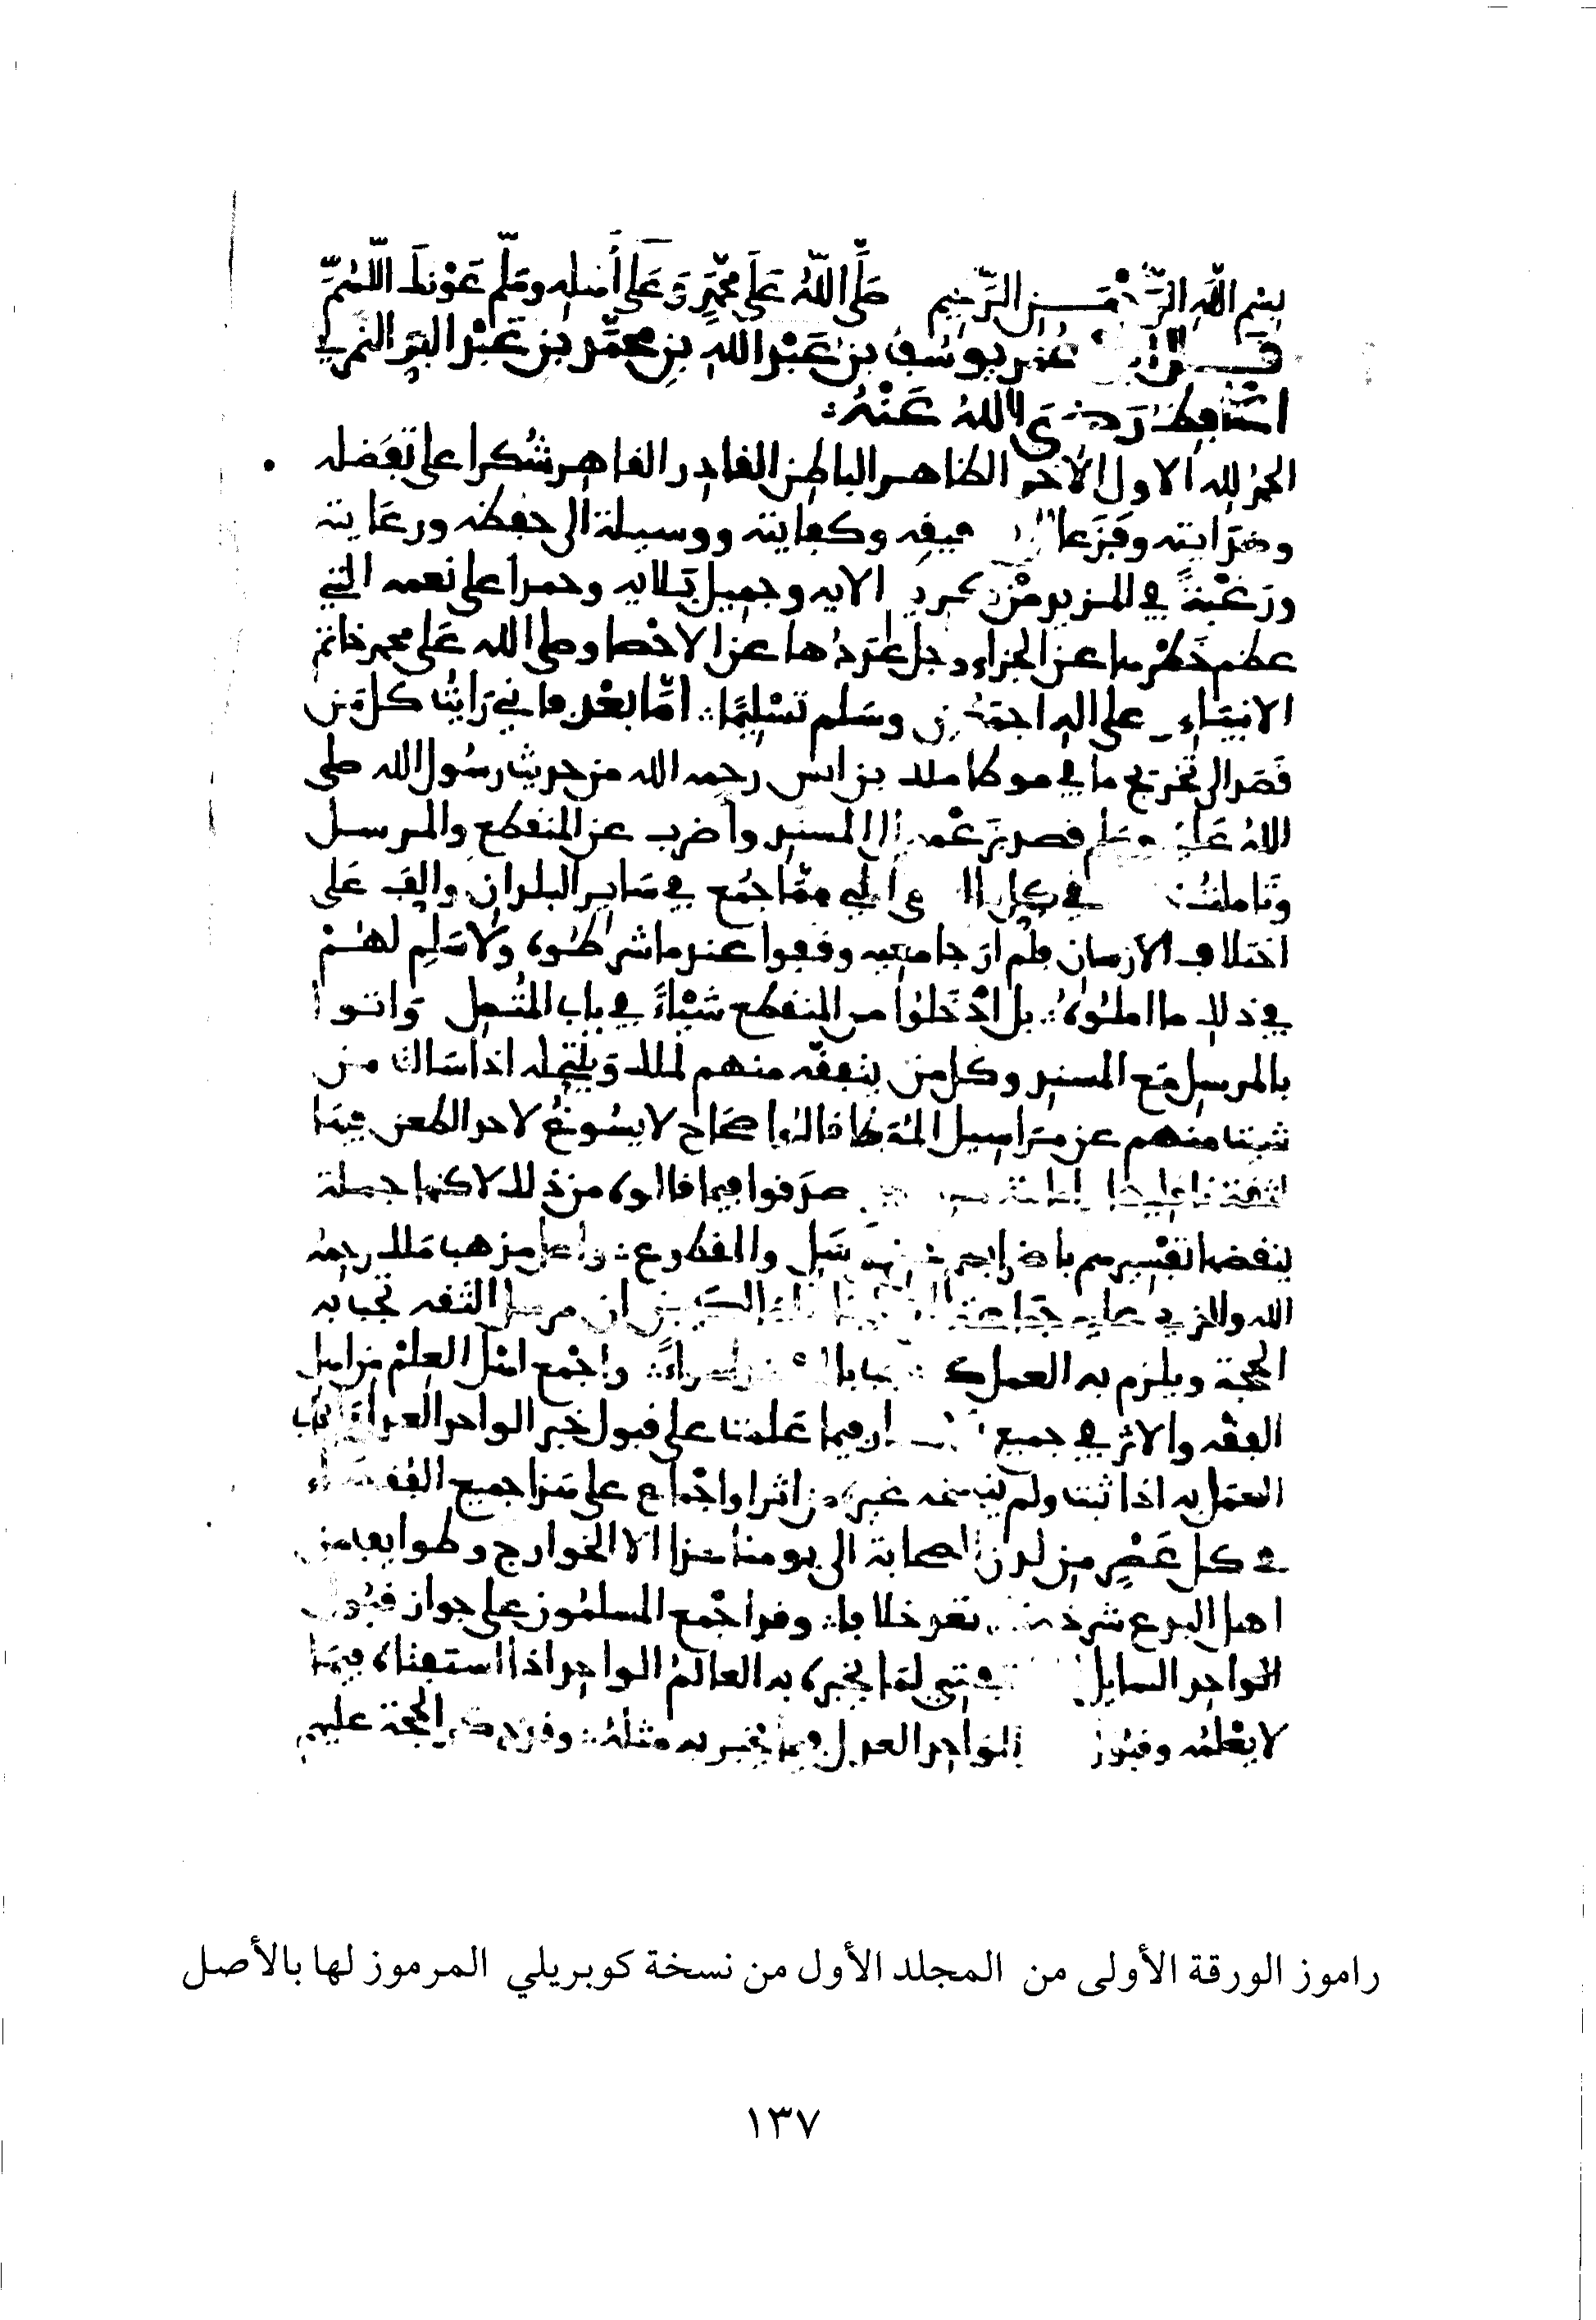 بسم الله الرحمن الرحيم صلى الله على محمد وعلى أهله وسلم عونك اللهم
قال أبو عمر يوسف بن عبد الله بن محمد بن عبد البر النمري
الحافظ رضي الله عنه
الحمد لله الاول الآخر الظاهر الباطن القادر القاهر شكرا على تفضله
وهدايته وفزعا الى توفيقه وكفايته ووسيلة الى حفظه ورعايته
ورغبة في المزيد من كريم الايه وجميل بلايه وحمدا على نعمه التي
عظم خطرها عن الجزاء وجل عددها عن الاحصا وصلى الله على محمد خاتم
الانبياء وعلى اله اجمعين وسلم تسليما أما بعد فاني رأيت كل من
قصد الى تخريج ما في موطا ملك بن انس رحمه الله من حديث رسول الله صلى
الله عليه وسلم قصد بزعمه الى المسند واضرب عن المنقطع والمرسل
وتاملت في كل مما جمع في ساير البلدان والف على
اختلاف الازمان فلم ار جامعيه وقفوا عند ما شرطوه ولا سلم لهم
في ذلك ما املوه بل ادخلوا من المنقطع شيئا في باب المتصل واتوا
بالمرسل مع المسند وكل من يتفقه منهم لملك وينتحله اذا سالت من
شيت منهم عن مراسيل الموطا قالوا صحاح لا يسوغ لاحد الطعن فيها
لثقة ناقليها وامانة صدقوا فيما قالوه من ذلك لاكنها جملة
ينقضها تفسيرهم باضرابهم عن المرسل والمقطوع واصل مذهب ملك رحمه
الله والذي عليه جماعة المالكيين ان مرسل الثقه تجب به
الحجة ويلزم به العمل كما يجب بالمسند سواء واجمع اهل العلم من اهل
الفقه والاثر في جميع الامصار فيما علمت على قبول خبر الواحد العدل وايجاب
العمل به اذا ثبت ولم ينسخه غيره من اثر او اجماع على هذا جميع الفقهاء
في كل عصر من لدن الصحابة الى يومنا هذا الا الخوارج وطوايف من
اهل البدع شرذمة تعد خلافا وقد اجمع المسلمون على جواز قبول
الواحد السايل المستفتي لما يخبره به العالم الواحد اذا استفتاه فيما
لا يعلمه وقبول خبر الواحد العدل فيما يخبر به مثله وقد ذكر الحجة عليهم
راموز الورقة الأولى من المجلد الأول من نسخة كوبريلي المرموز لها بالأصل
١٣٧